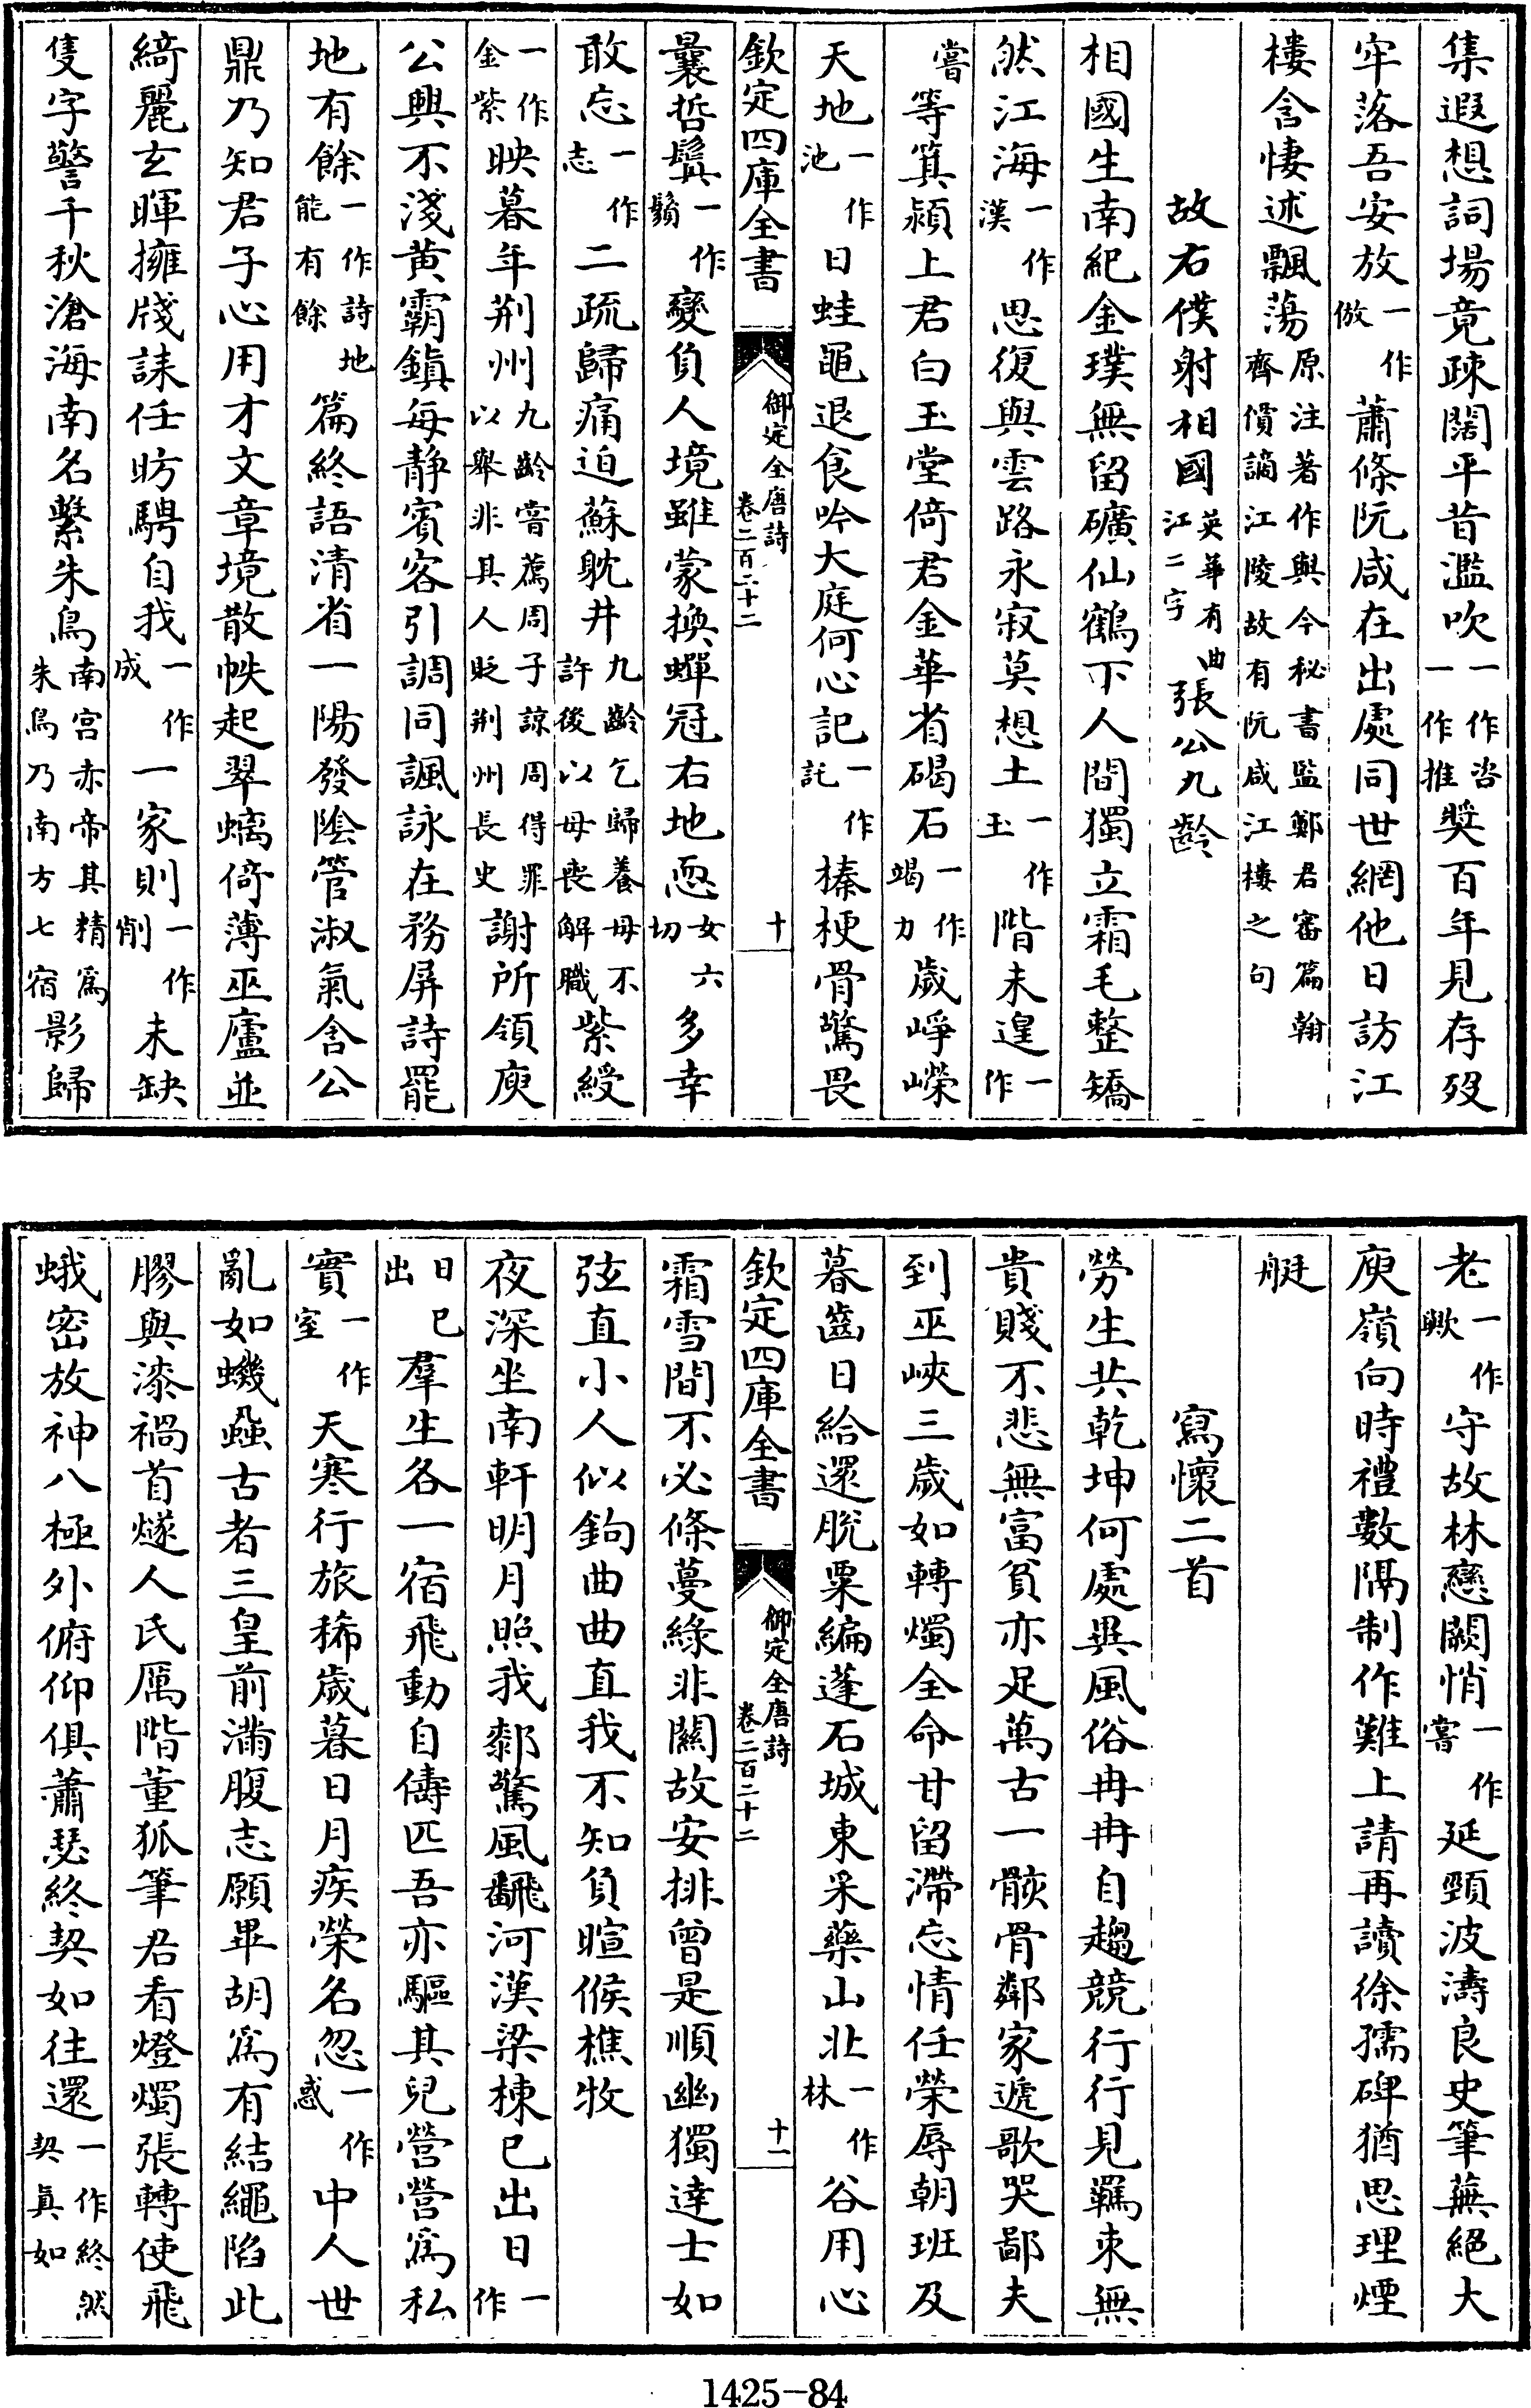 集遐想詞場竟疎闊平昔濫吹一作咨一作推奬百年見存歿
牢落吾安放一作倣蕭條阮咸在出處同世網他日訪江
樓含悽述飄蕩原注著作與今秘書監鄭君審篇翰齊價謫江陵故有阮咸江樓之句
故右僕射相國英華有曲江二字張公九齡
相國生南紀金璞無留礦仙鶴下人間獨立霜毛整矯
然江海一作漢思復與雲路永寂莫想土一作玉階未遑一作
嘗等箕潁上君白玉堂倚君金華省碣石一作竭力歲崢嶸
天地一作池日蛙黽退食吟大庭何心記一作託榛梗骨驚畏
欽定四庫全書 御定全唐詩卷二百二十二 十
曩哲鬒一作鬚變負人境雖蒙換蟬冠右地恧女六切多幸
敢忘一作志二疏歸痛迫蘇躭井九齡乞歸養母不許後以母喪解職紫綬
一作金紫映暮年荆州九齡嘗薦周子諒周得罪以舉非其人貶荆州長史謝所領庾
公興不淺黄霸鎮每静賓客引調同諷詠在務屏詩罷
地有餘一作詩地能有餘篇終語清省一陽發陰管淑氣含公
鼎乃知君子心用才文章境散帙起翠螭倚薄巫廬並
綺麗玄暉擁牋誄任昉騁自我一作成一家則一作削未缺
隻字警千秋滄海南名繫朱鳥南宫赤帝其精爲朱鳥乃南方七宿影歸
老一作歟守故林戀闕悄一作嘗延頸波濤良史筆蕪絕大
庾嶺向時禮數隔制作難上請再讀徐孺碑猶思理煙
艇
寫懷二首
勞生共乾坤何處異風俗冉冉自趨競行行見羈束無
貴賤不悲無富貧亦足萬古一骸骨鄰家遞歌哭鄙夫
到巫峽三歲如轉燭全命甘留滯忘情任榮辱朝班及
暮齒日給還脫粟編蓬石城東采藥山北一作林谷用心
欽定四庫全書 御定全唐詩卷二百二十二 十一
霜雪間不必條蔓緑非關故安排曾是順幽獨達士如
弦直小人似鉤曲曲直我不知負暄候樵牧
夜深坐南軒明月照我䣛驚風飜河漢梁棟已出日一作
日已出羣生各一宿飛動自儔匹吾亦驅其兒營營爲私
實一作室天寒行旅稀歲暮日月疾榮名忽一作惑中人世
亂如蟣蝨古者三皇前滿腹志願畢胡爲有結繩陷此
膠與漆禍首燧人氏厲階董狐筆君看燈燭張轉使飛
蛾密放神八極外俯仰俱蕭瑟終契如往還一作終然契真如
1425-84